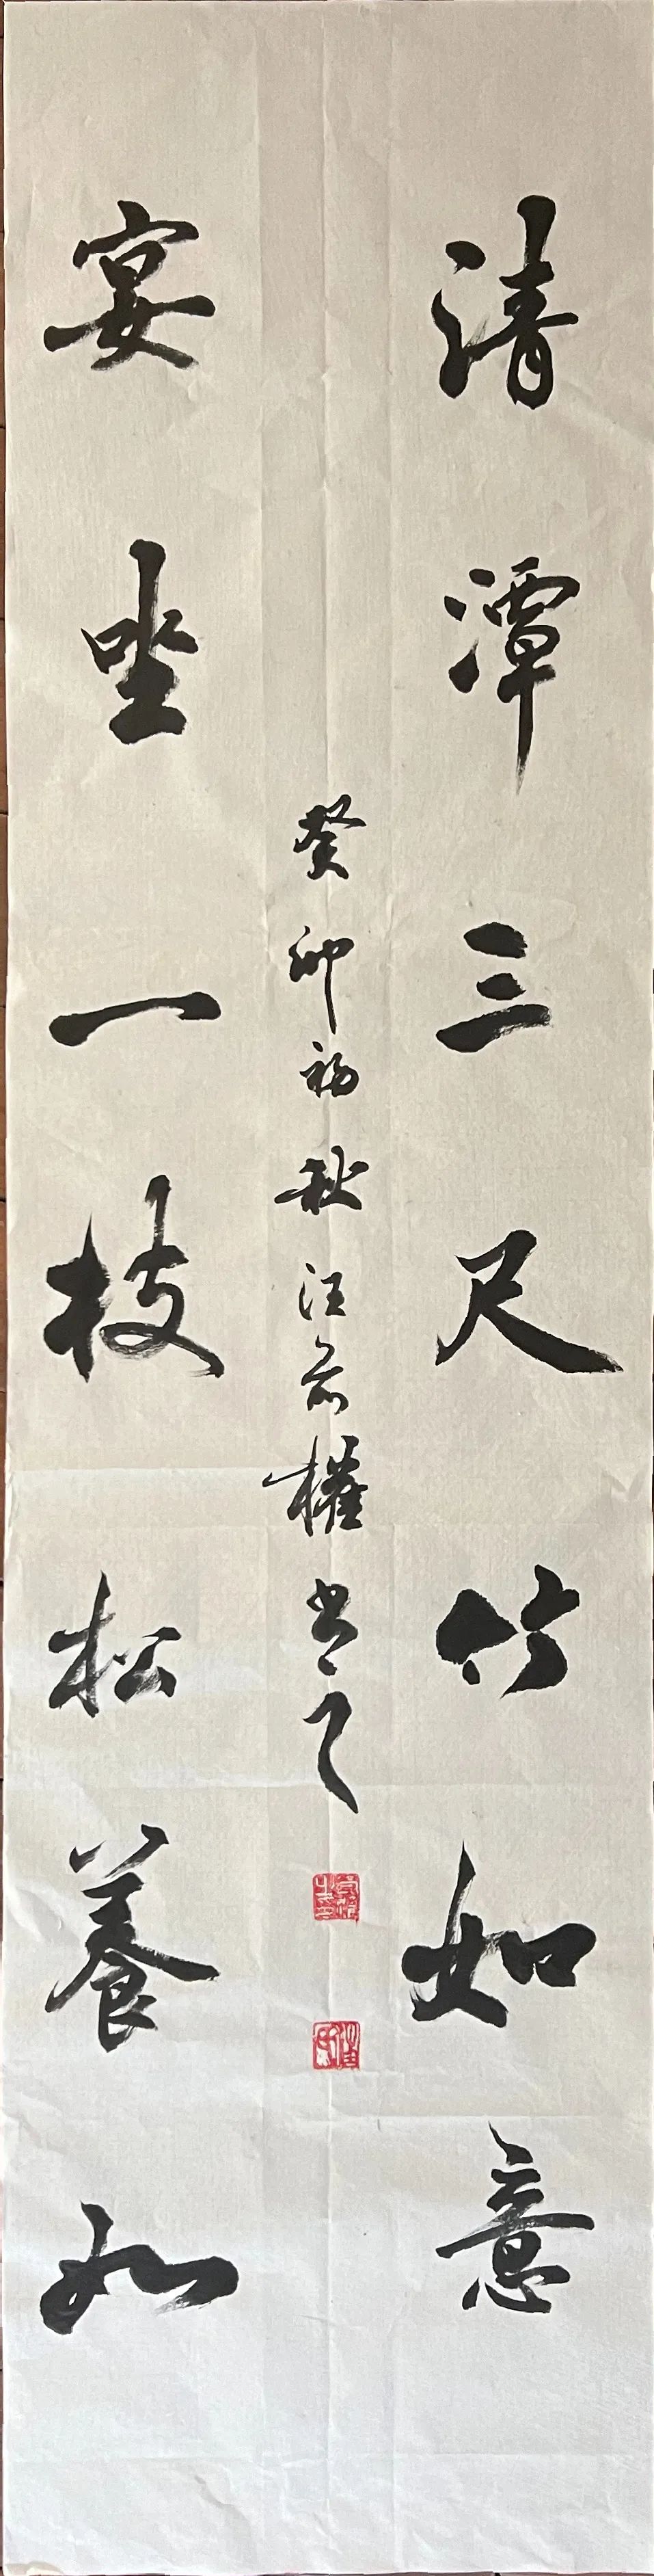 清潭三尺竹如意
宴坐一枝松養和
癸卯初秋汪玄權書之